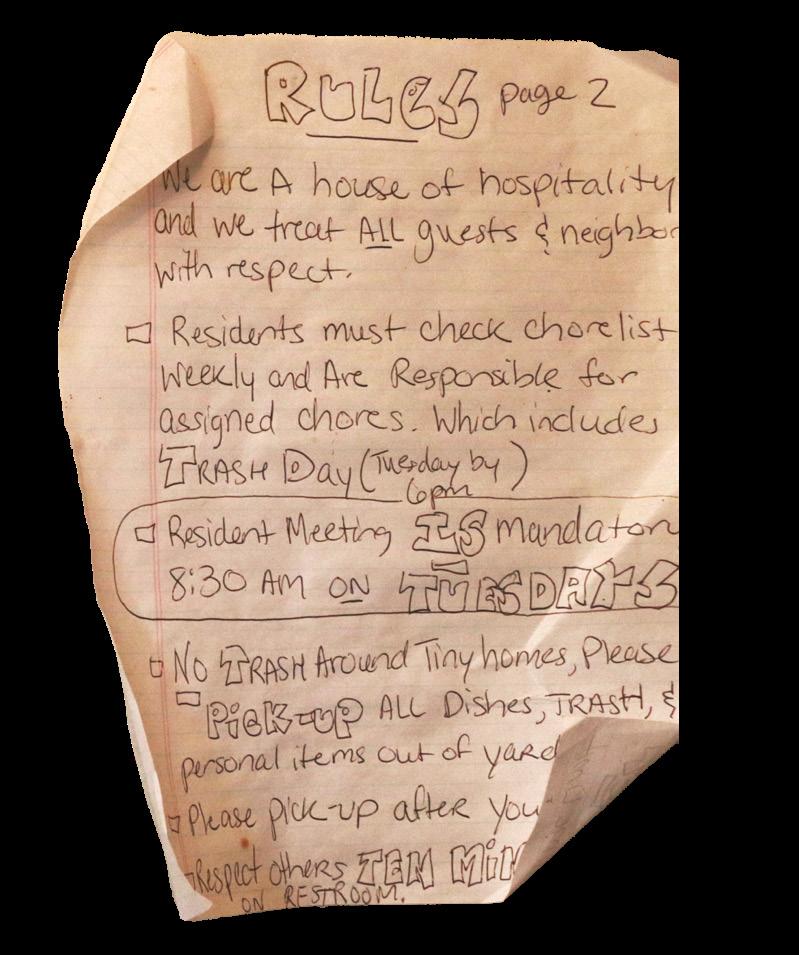 RULES page 2
We are A house of hospitality
and we treat ALL guests & neighbor
with respect.
Residents must check chorelist
Weekly and Are Responsible for
assigned chores. Which includes
TRASH Day (Tuesday by
6pm)
Resident Meeting IS mandator
8:30 AM ON TUESDAYS
No TRASH Around Tiny homes, Please
PiCK-UP ALL Dishes, TRASH, &
personal items out of yard
Please pick-up after you
Respect others TEN MiN
ON RESTROOM.